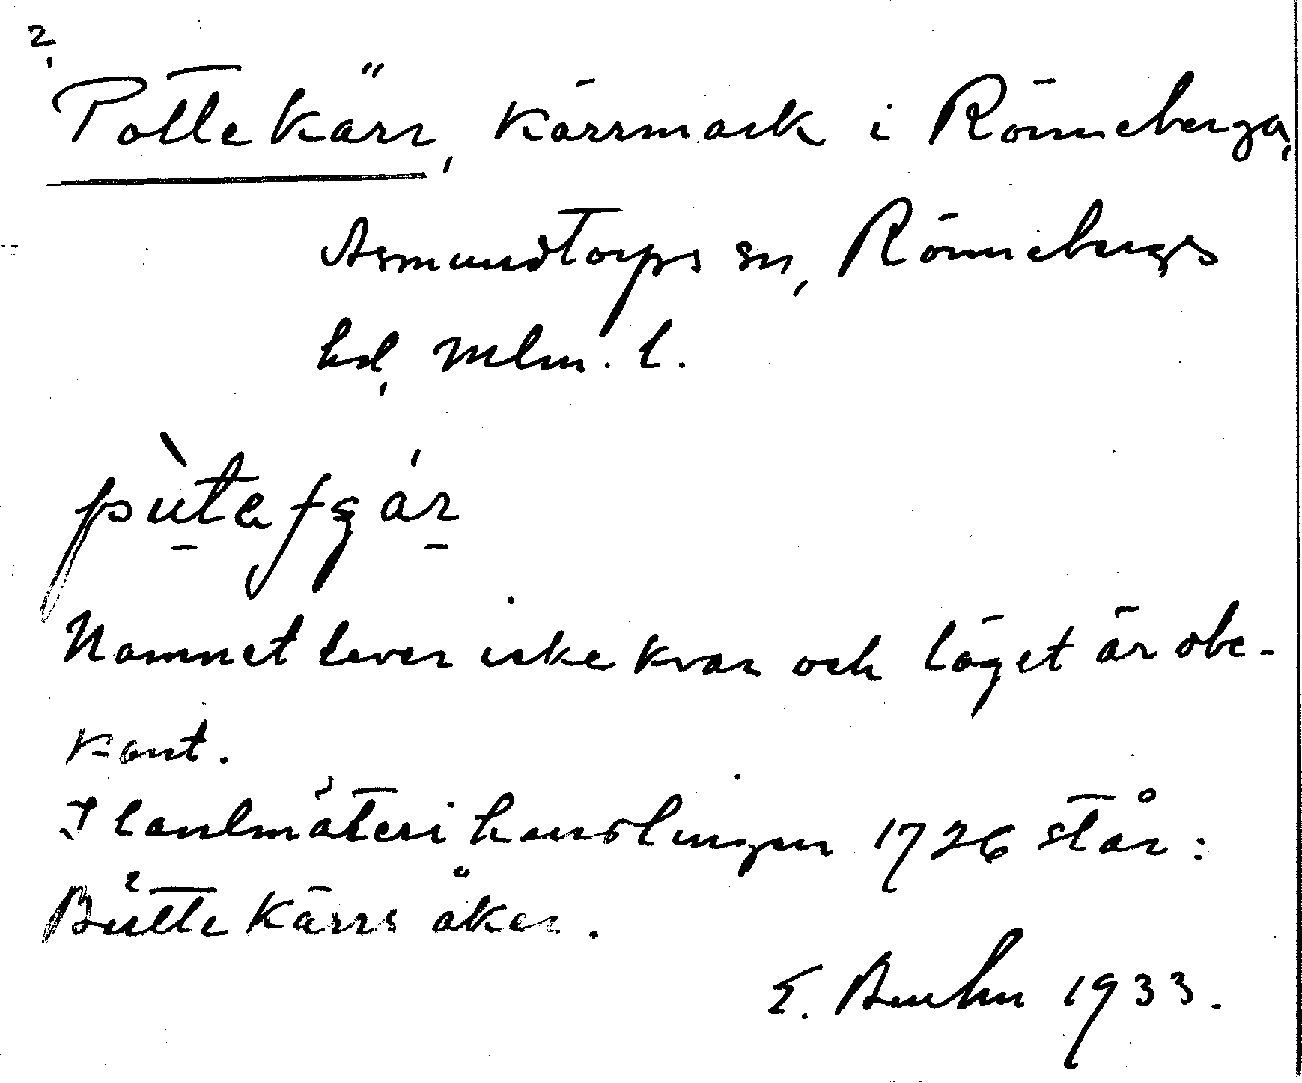 2,
Pottekärr, Kärrmark i Rönneberga,
Asmundtorps sn, Rönnebergs
hd, Mlm. l.
Namnet lever icke kvar och läget är obe-
kant.
I lantmäterihandlingen 1726 står:
Bütte Kärrs åker.
E. Bruhn 1933.